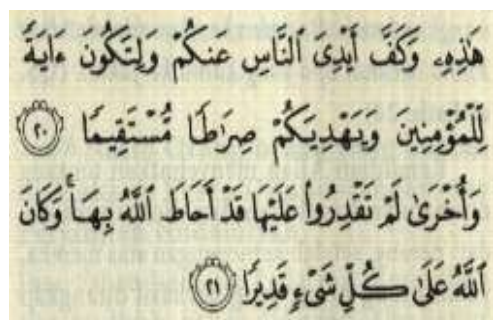 هَٰذِهِۦ وَكَفَّ أَيْدِىَ ٱلنَّاسِ عَنكُمْ وَلِتَكُونَ ءَايَةً
لِّلْمُؤْمِنِينَ وَيَهْدِيَكُمْ صِرَٰطًا مُّسْتَقِيمًا ﴿٢٠﴾
وَأُخْرَىٰ لَمْ تَقْدِرُوا۟ عَلَيْهَا قَدْ أَحَاطَ ٱللَّهُ بِهَا ۚ وَكَانَ
ٱللَّهُ عَلَىٰ كُلِّ شَىْءٍ قَدِيرًا ﴿٢١﴾